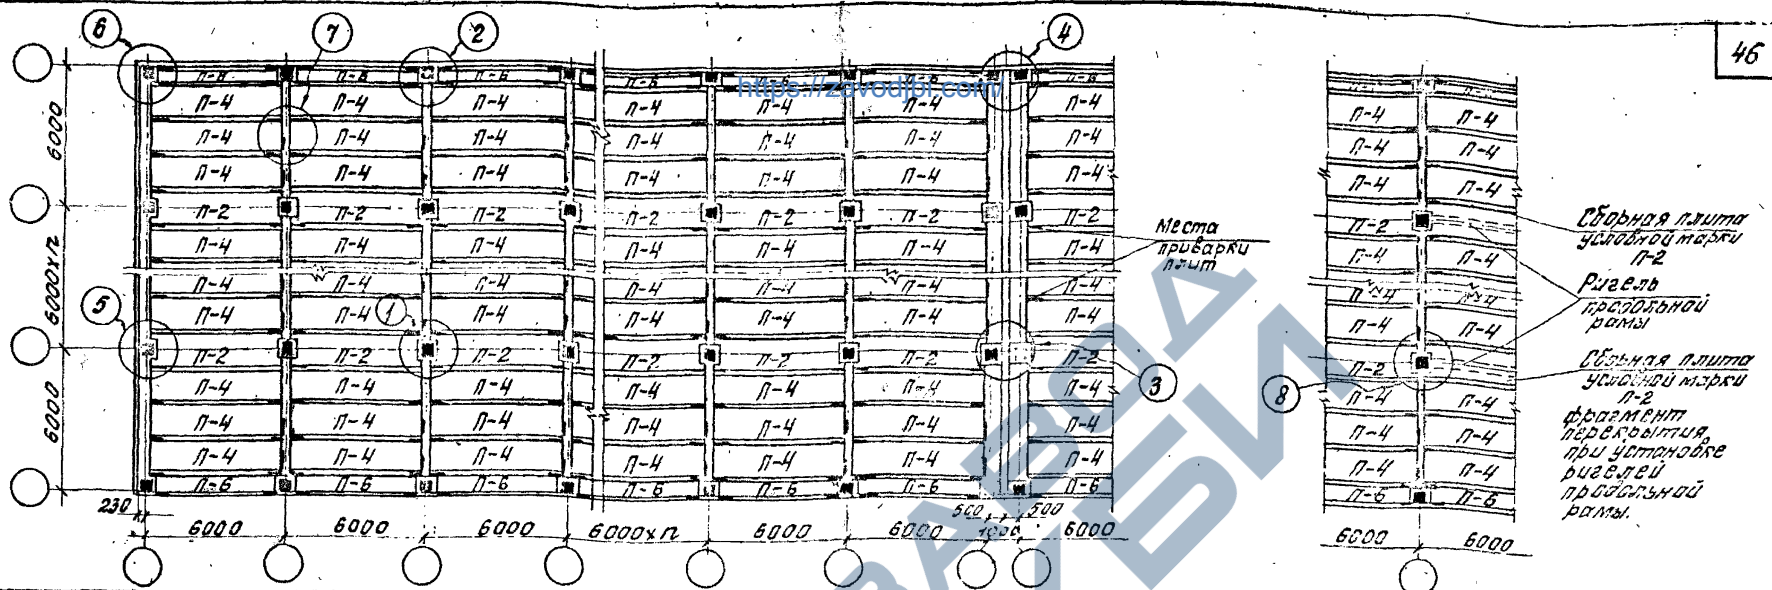 46
6
7
2
4
П-6 П-6 П-6 П-6 П-6 П-6 П-6
https://zavodjbi.com/
П-4 П-4 П-4 П-4 П-4 П-4 П-4
П-4 П-4 П-4 П-4 П-4 П-4 П-4
П-4 П-4 П-4 П-4 П-4 П-4 П-4
П-2 П-2 П-2 П-2 П-2 П-2 П-2
П-4 П-4 П-4 П-4 П-4 П-4 П-4
П-4 П-4 П-4 П-4 П-4 П-4 П-4
П-4 П-4 П-4 П-4 П-4 П-4 П-4
П-2 П-2 П-2 П-2 П-2 П-2 П-2
П-4 П-4 П-4 П-4 П-4 П-4 П-4
П-4 П-4 П-4 П-4 П-4 П-4 П-4
П-4 П-4 П-4 П-4 П-4 П-4 П-4
П-6 П-6 П-6 П-6 П-6 П-6 П-6
6000
6000хп
6000
5
1
3
8
Места
приварки
плит
230
6000 6000 6000 6000хп 6000 6000 500 1000 500 6000
П-4 П-4
П-4 П-4
П-4 П-4
П-2
П-4 П-4
П-4 П-4
П-4 П-4
П-2
П-4 П-4
П-4 П-4
П-4 П-4
П-6 П-6
6000 6000
Сборная плита
условной марки
П-2
Ригель
продольной
рамы
Сборная плита
условной марки
П-2
фрагмент
перекрытия
при установке
ригелей
продольной
рамы.
ЗАВОД
ЖБИ